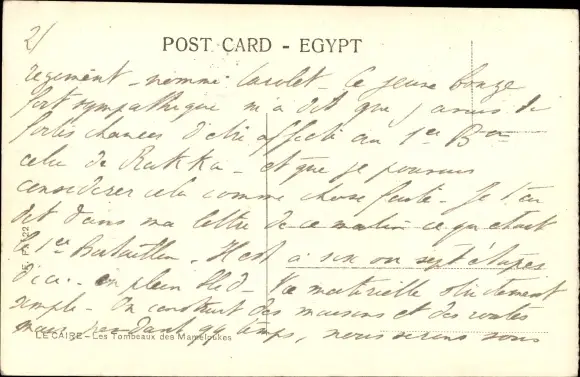 2/
POST CARD - EGYPT
régiment - nommé Carolet - Ce jeune bonze
fort sympathique m'a dit que j'avais de
fortes chances d'être affecté au 1er Bon
celui de Rakka - et que je pouvais
considérer cela comme chose faite. Je t'ai
dit dans ma lettre de ce matin ce qu'était
le 1er Bataillon. Il est à six ou sept étapes
d'ici - en plein bled - Vie matérielle strictement
simple - On construit des maisons et des routes
mais pendant qq temps, nous serons sous
LE CAIRE - Les Tombeaux des Mamelouks